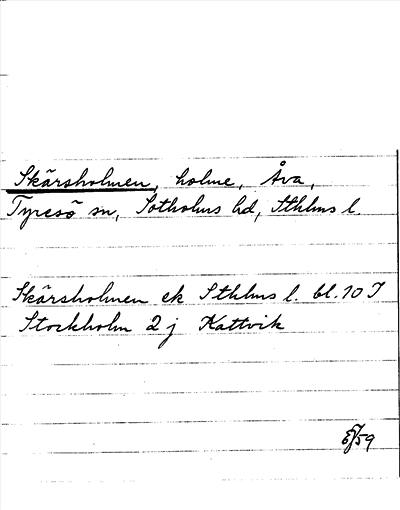 Skärsholmen, holme, Åva,
Tyresö sn, Sotholms hd, Sthlms l.
Skärsholmen ek Sthlms l. bl. 10 I
Stockholm 2 j Kattvik